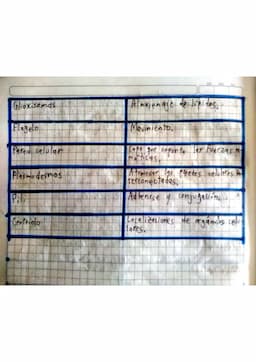 Glioxisomas
Almacenaje de lípidos.
Flagelo
Movimiento.
Pared celular
Capa que soporta las fuerzas
Plasmodesmos
Atravesar las paredes celulares
Pili
Adherirse y conjugación.
Centriolo
Localizaciones de orgánulos celu
lares.